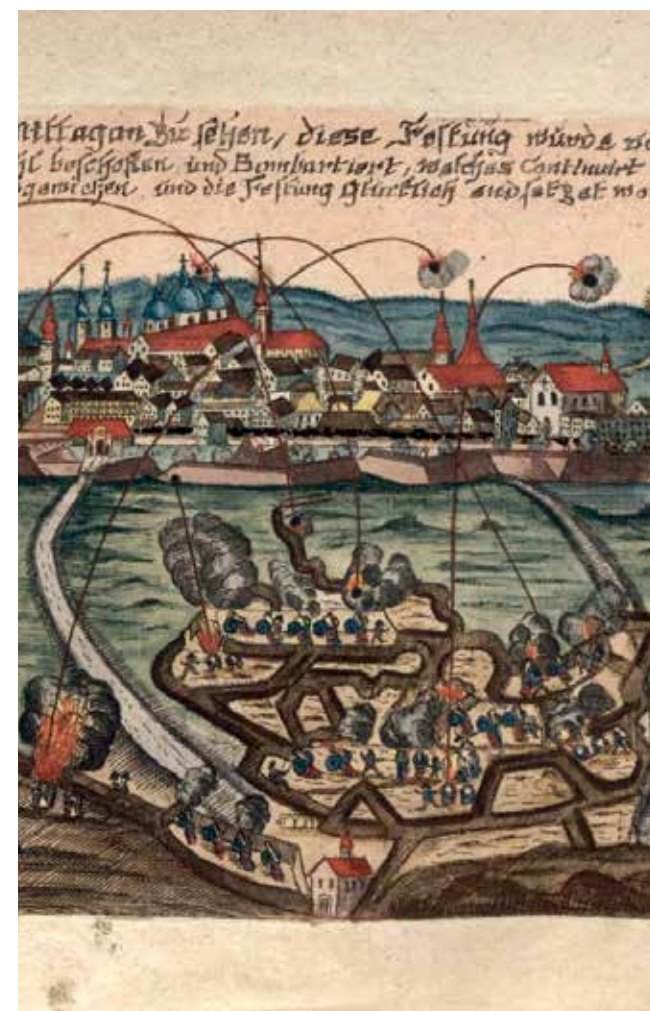 Mittagan Zu sehen, diese Festung wurde
beschossen und Bombartiert, welches Continuirt
gewichen und die Festung Glücklich endsetzet